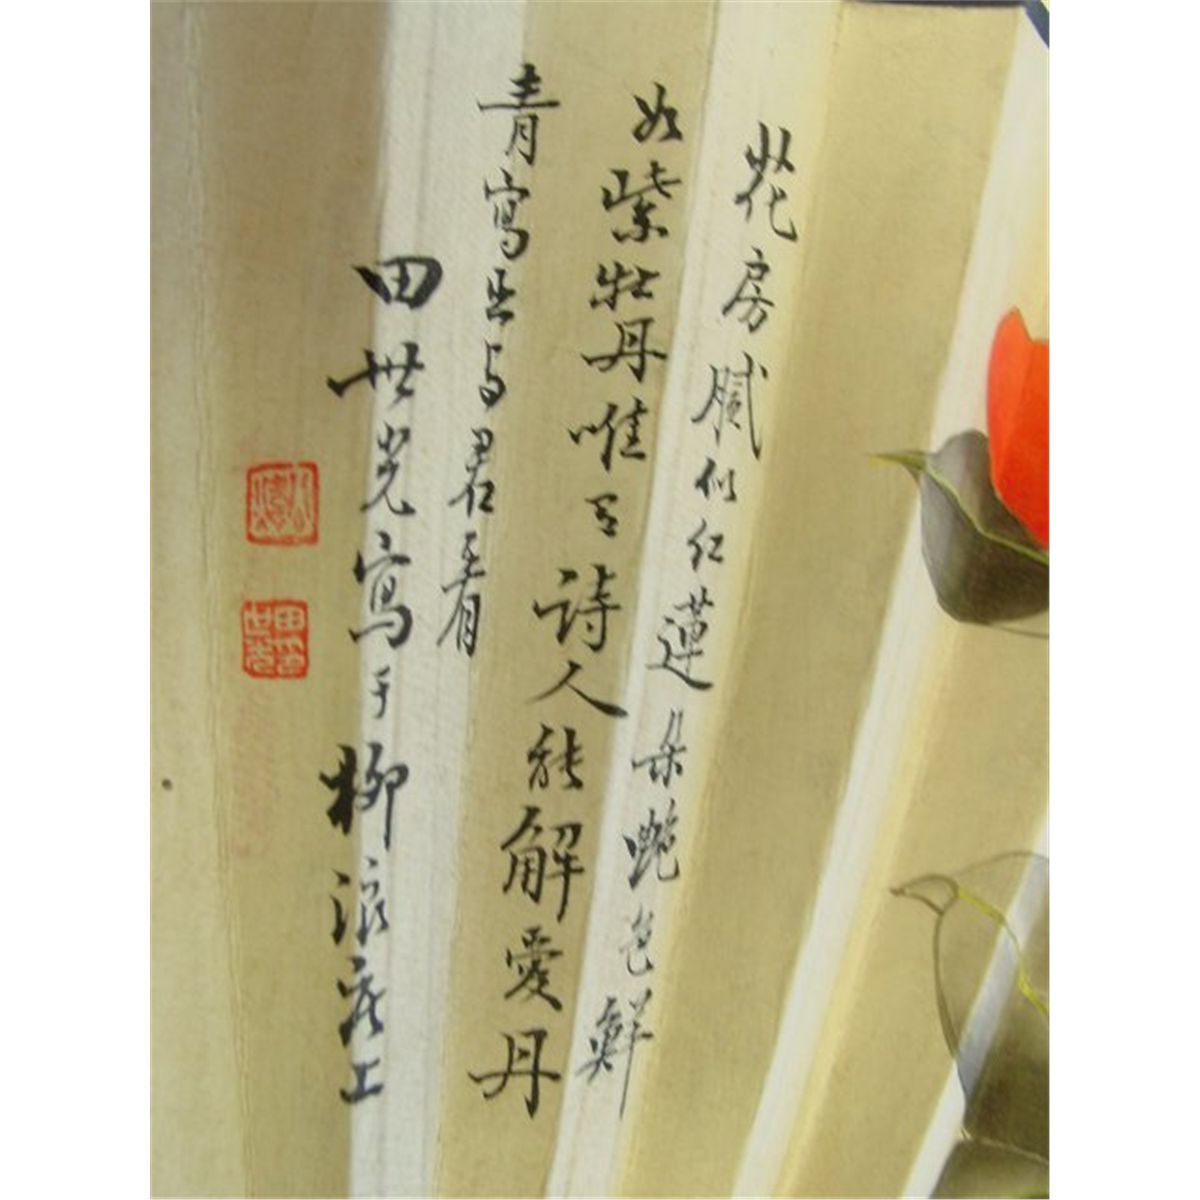 花房腻似红莲朵艳色鲜
如紫牡丹唯有詩人能解愛丹
青寫出与君看
田世光寫于柳浪
田世光印